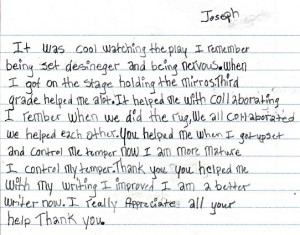 Joseph
It was cool watching the play I remember
being set desineger and being nervous. When
I got on the stage holding the mirros. Third
grade helped me alot. It helped me with collaborating
I rember when we did the rug, We all collaborated
we helped each other. You helped me when I got upset
and control me temper now I am more mature
I control my temper. Thank you you helped me
with my writing I improved I am a better
writer now. I really Appreciate all your
help Thank you.